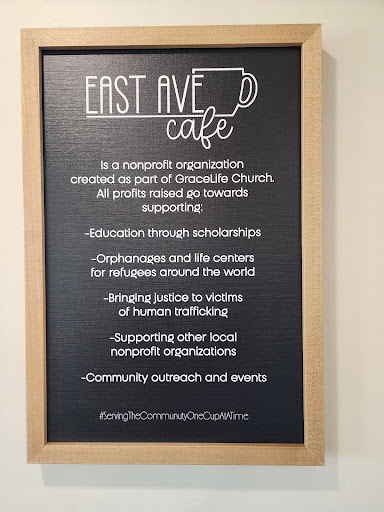 EAST AVE
cafe
Is a nonprofit organization
created as part of GraceLife Church.
All profits raised go towards
supporting:
-Education through scholarships
-Orphanages and life centers
for refugees around the world
-Bringing justice to victims
of human trafficking
-Supporting other local
nonprofit organizations
-Community outreach and events
#ServingTheCommunutyOneCupAtATime